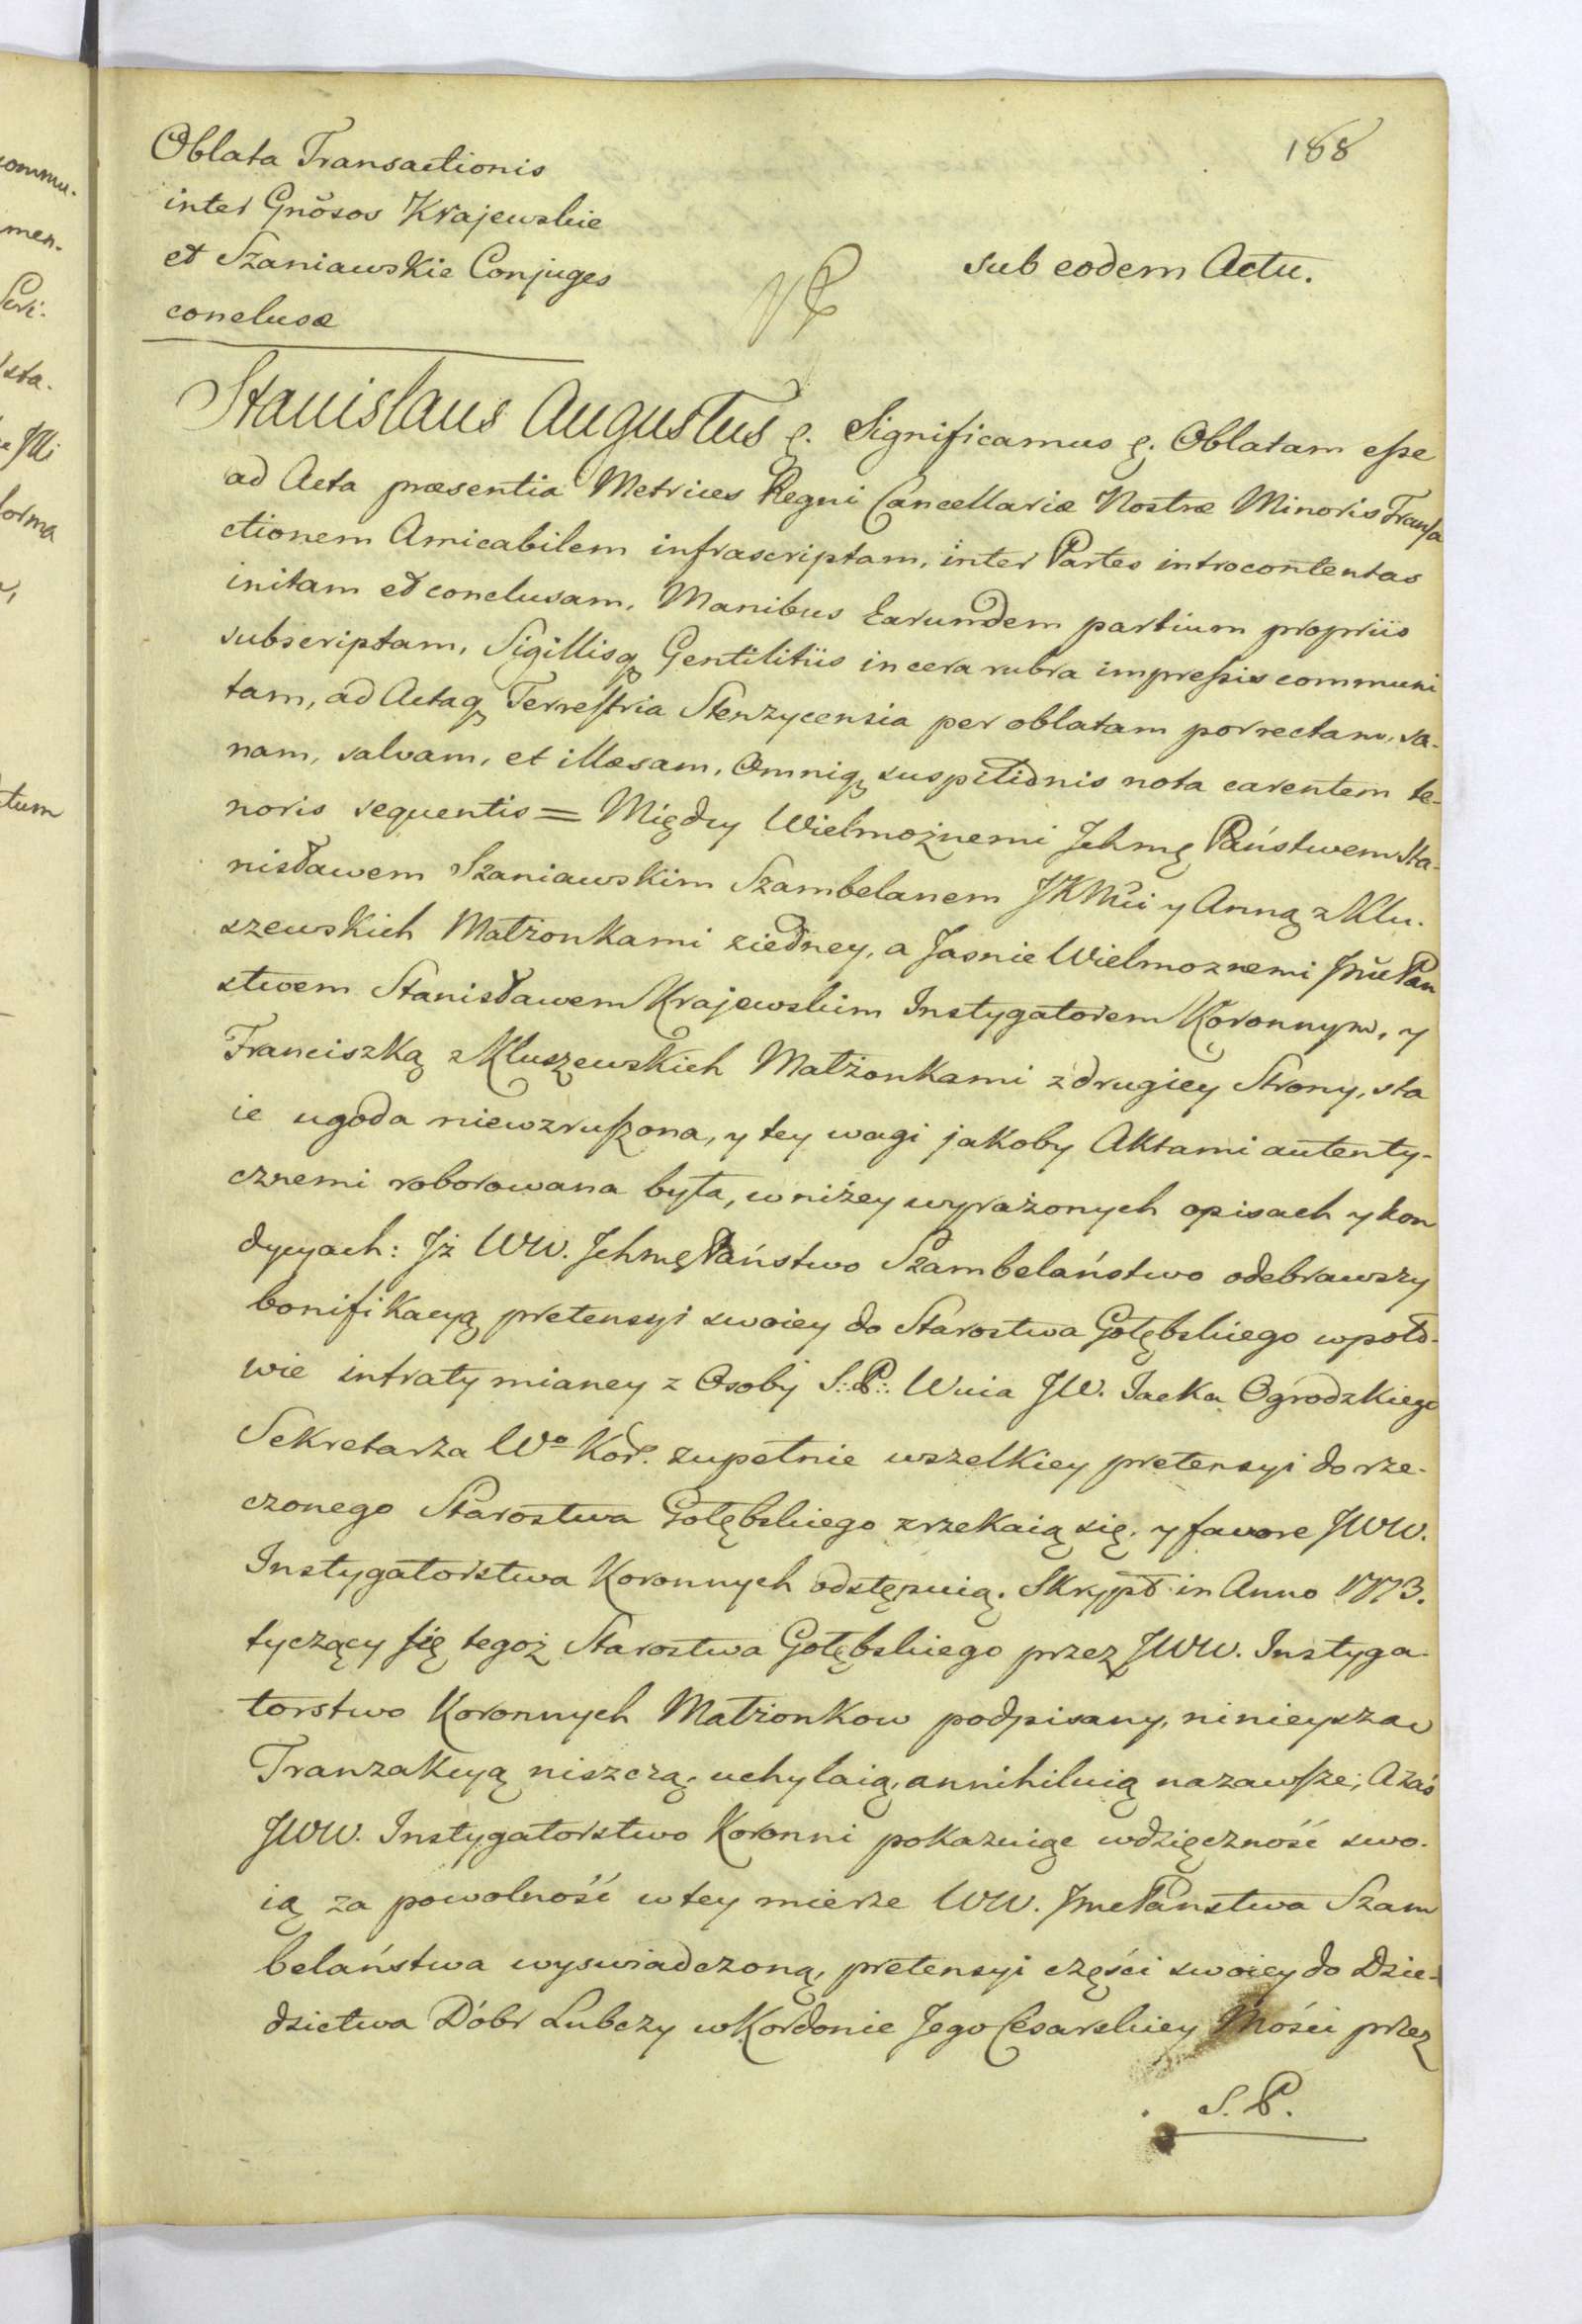 188
Oblata Transactionis
inter Gnõsos Krajewskie
et Szaniawskie Conjuges
conclusæ
sub eodem Actu.
Stanislaus Augustus &. Significamus &. Oblatam eſse
ad Acta præsentia Metrices Regni Cancellariæ Nostræ Minoris Transa
ctionem Amicabilem infrascriptam, inter Partes introcontentas
initam et conclusam, Manibus Earundem partium propriis
subscriptam, Sigillisq; Gentilitiis in cera rubra impreſsis communi
tam, ad Actaq; Terreſtria Stenzycensia per oblatam porrectam, sa-
nam, salvam, et illæsam, Omniq; suspitionis nota carentem te-
noris sequentis = Między Wielmożnemi Jchmę Państwem Sta-
nisławem Szaniawskim Szambelanem JKMci y Anną z Klu-
szewskich Małżonkami ziedney, a Jasnie Wielmoznemi Jmċ Pan
stwem Stanisławem Krajewskim Instygatorem Koronnym, y
Franciszką z Kluszewskich Małżonkami z drugiey Strony, sta
ie ugoda niewzruſzona, y tey wagi jakoby Aktami autenty-
cznemi roborowana była, w niżey wyrażonych opisach y kon
dycyach: Jż WW. Jchmę Państwo Szambelaństwo odebrawszy
bonifikacyą pretensyi swoiey do Starostwa Gołębskiego wpoło-
wie intraty mianey z Osoby S: P: Wuia JW. Jacka Ogrodzkiego
Sekretarza Wo Kor. zupełnie wszelkiey pretensyi do rze-
czonego Starostwa Gołębskiego zrzekaią się, y favore JWW.
Instygatorstwa Koronnych odstępuią. Skrypt in Anno 1773.
tyczący ſię tegoż Starostwa Gołębskiego przez JWW. Instyga-
torstwo Koronnych Małżonkow podpisany, ninieyszą
Tranzakcyą niszczą, uchylaią, annihiluią nazawſze; A zaś
JWW. Instygatorstwo Koronni pokazuiąc wdzięczność swo-
ią za powolność w tey mierze WW. Jmć Państwa Szam
belaństwa wyswiadczoną, pretensyi części swoiey do Dzie-
dzictwa Dóbr Lubczy w Kordonie Jego Cesarskiey Mości przez
S. P.